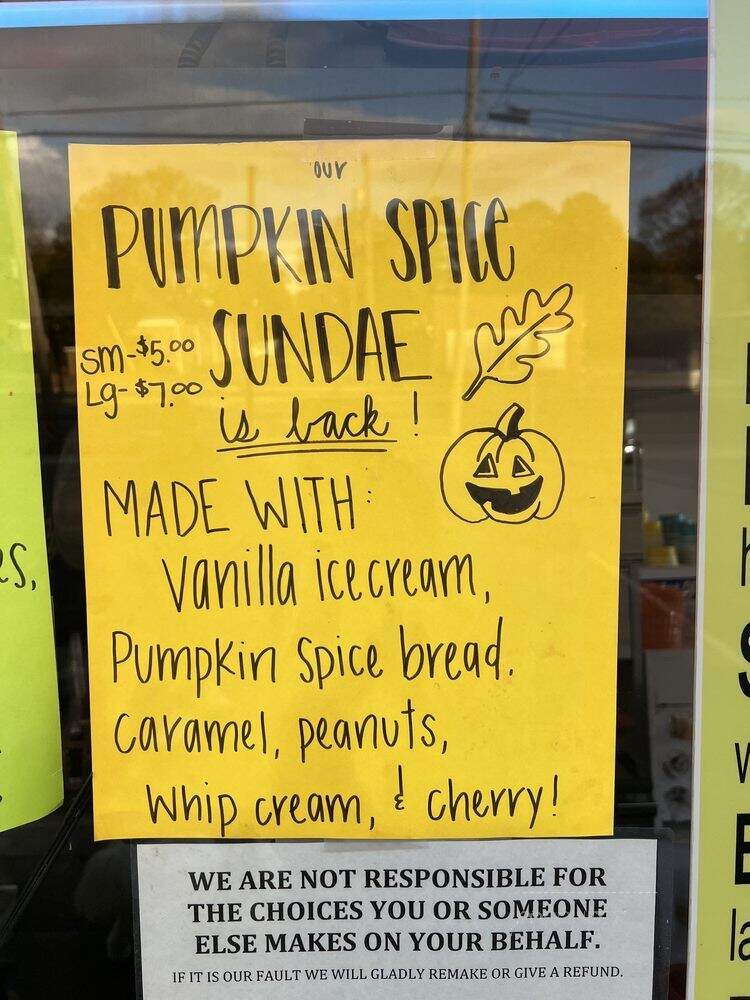 our
PUMPKIN SPICE
SUNDAE
sm-$5.00
Lg-$7.00
is back!
MADE WITH:
Vanilla icecream,
Pumpkin Spice bread.
caramel, peanuts,
Whip cream, & cherry!
WE ARE NOT RESPONSIBLE FOR
THE CHOICES YOU OR SOMEONE
ELSE MAKES ON YOUR BEHALF.
IF IT IS OUR FAULT WE WILL GLADLY REMAKE OR GIVE A REFUND.